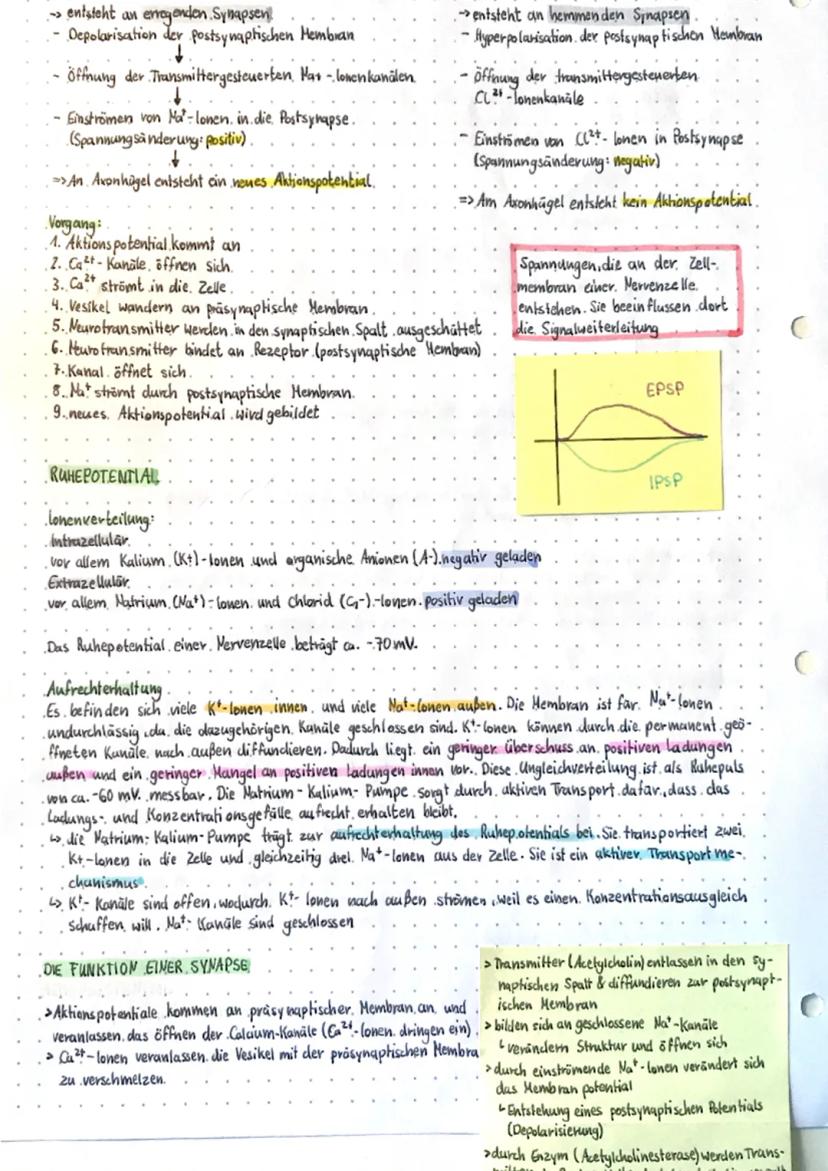 → entsteht an erregenden Synapsen
- Depolarisation der postsynaptischen Membran
↓
- Öffnung der Transmittergesteuerten Na+ -Ionenkanälen
↓
- Einströmen von Na⁺-Ionen in die Postsynapse
(Spannungsänderung: positiv)
↓
=> An Axonhügel entsteht ein neues Aktionspotential
→ entsteht an hemmenden Synapsen
- Hyperpolarisation der postsynaptischen Membran
- Öffnung der transmittergesteuerten
Cl²⁺-Ionenkanäle
- Einströmen von Cl²⁺- Ionen in Postsynapse
(Spannungsänderung: negativ)
=> Am Axonhügel entsteht kein Aktionspotential
Vorgang:
1. Aktionspotential kommt an
2. Ca²⁺- Kanäle öffnen sich
3. Ca²⁺ strömt in die Zelle
4. Vesikel wandern an präsynaptische Membran
5. Neurotransmitter werden in den synaptischen Spalt ausgeschüttet
6. Neurotransmitter bindet an Rezeptor (postsynaptische Membran)
7. Kanal öffnet sich
8. Na⁺ strömt durch postsynaptische Membran
9. neues Aktionspotential wird gebildet
Spannungen, die an der Zell-
membran einer Nervenzelle
entstehen. Sie beeinflussen dort
die Signalweiterleitung
EPSP
IPSP
RUHEPOTENTIAL
Ionenverteilung:
Intrazellulär
vor allem Kalium (K+)-Ionen und organische Anionen (A-) negativ geladen
Extrazellulär
vor allem Natrium (Na+)-Ionen und Chlorid (Cl-)-Ionen positiv geladen
Das Ruhepotential einer Nervenzelle beträgt ca. -70 mV.
Aufrechterhaltung
Es befinden sich viele K⁺-Ionen innen und viele Na⁺-Ionen außen. Die Membran ist für Na⁺-Ionen
undurchlässig, da die dazugehörigen Kanäle geschlossen sind. K⁺-Ionen können durch die permanent geö-
ffneten Kanäle nach außen diffundieren. Dadurch liegt ein geringer überschuss an positiven ladungen
außen und ein geringer Mangel an positiven ladungen innen vor. Diese Ungleichverteilung ist als Ruhepuls
von ca. -60 mV messbar. Die Natrium-Kalium-Pumpe sorgt durch aktiven Transport dafür, dass das
Ladungs- und Konzentrationsgefälle aufrecht erhalten bleibt.
↳ die Natrium-Kalium-Pumpe trägt zur aufrechterhaltung des Ruhepotentials bei. Sie transportiert zwei
K+-Ionen in die Zelle und gleichzeitig drei Na⁺-Ionen aus der Zelle. Sie ist ein aktiver Transportme-
chanismus
↳ K⁺- Kanäle sind offen, wodurch K⁺- Ionen nach außen strömen, weil es einen Konzentrationsausgleich
schaffen will. Na⁺- Kanäle sind geschlossen
DIE FUNKTION EINER SYNAPSE
> Aktionspotentiale kommen an präsynaptischer Membran an und
veranlassen das öffnen der Calcium-Kanäle (Ca²⁺-Ionen dringen ein)
> Ca²⁺-Ionen veranlassen die Vesikel mit der präsynaptischen Membra
zu verschmelzen.
> Transmitter (Acetylcholin) entlassen in den sy-
naptischen Spalt & diffundieren zur postsynapt-
ischen Membran
> bilden sich an geschlossene Na⁺-Kanäle
↳ verändern Struktur und öffnen sich
> durch einströmende Na⁺-Ionen verändert sich
das Membranpotential
↳ Entstehung eines postsynaptischen Potentials
(Depolarisierung)
> durch Enzym (Acetylcholinesterase) werden Trans-